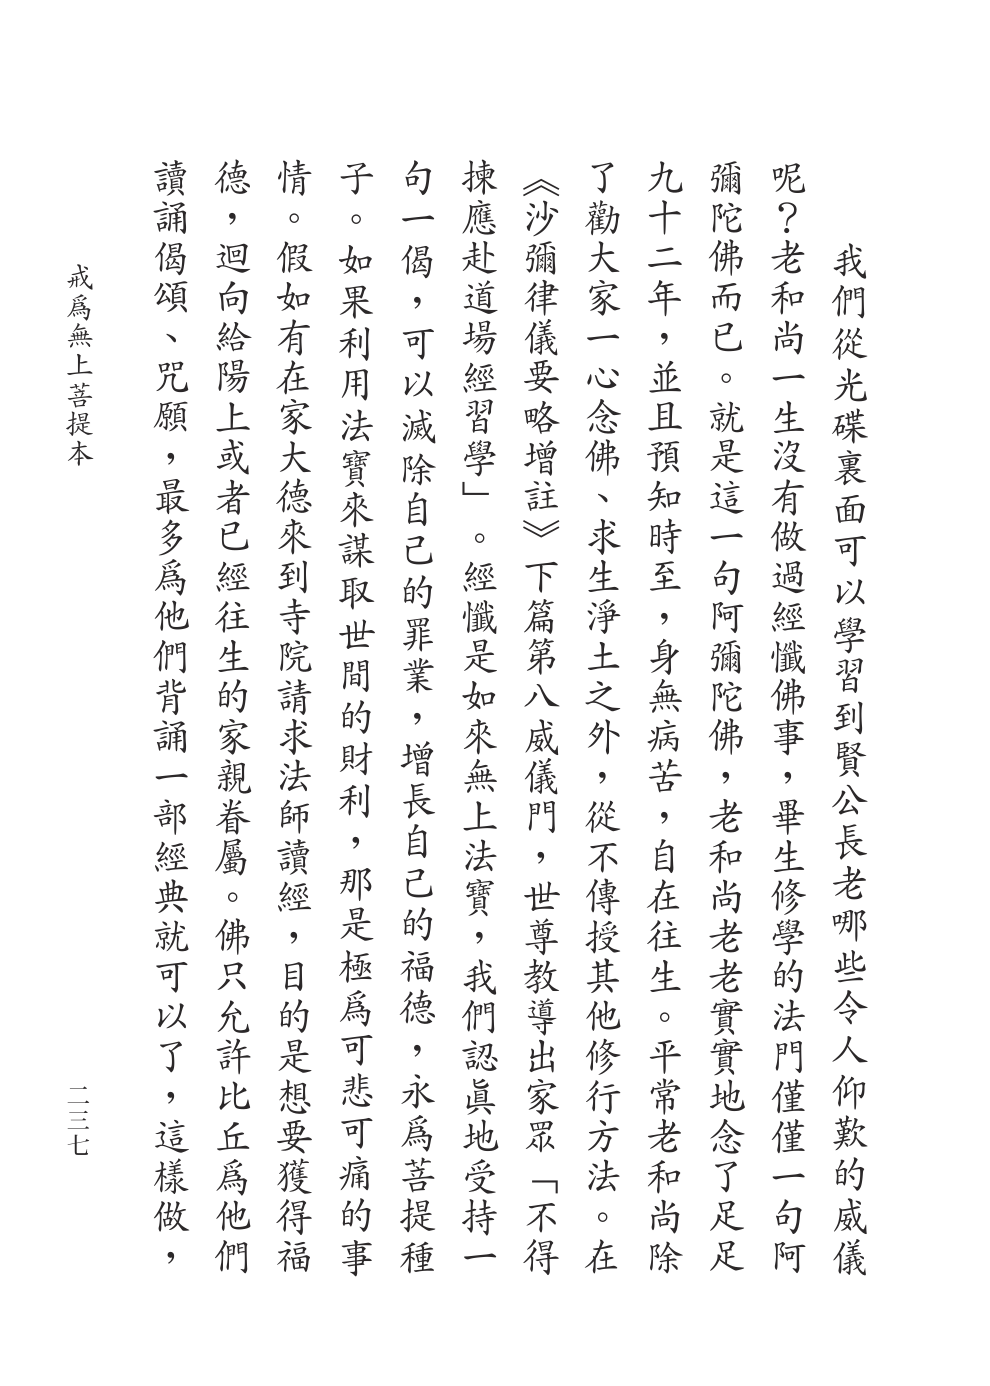 我們從光碟裏面可以學習到賢公長老哪些令人仰歎的威儀
呢？老和尚一生沒有做過經懺佛事，畢生修學的法門僅僅一句阿
彌陀佛而已。就是這一句阿彌陀佛，老和尚老老實實地念了足足
九十二年，並且預知時至，身無病苦，自在往生。平常老和尚除
了勸大家一心念佛、求生淨土之外，從不傳授其他修行方法。在
《沙彌律儀要略增註》下篇第八威儀門，世尊教導出家眾「不得
揀應赴道場經習學」。經懺是如來無上法寶，我們認眞地受持一
句一偈，可以滅除自己的罪業，增長自己的福德，永爲菩提種
子。如果利用法寶來謀取世間的財利，那是極爲可悲可痛的事
情。假如有在家大德來到寺院請求法師讀經，目的是想要獲得福
德，迴向給陽上或者已經往生的家親眷屬。佛只允許比丘爲他們
讀誦偈頌、咒願，最多爲他們背誦一部經典就可以了，這樣做，
戒爲無上菩提本
二三七